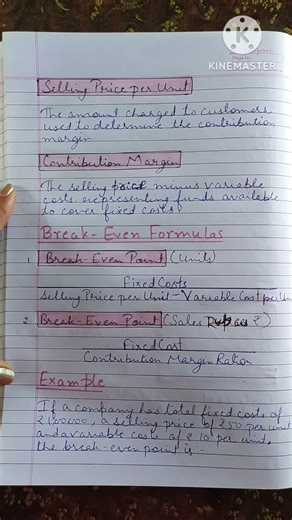 KINEMASTER
Selling Price per Unit
The amount charged to customers
used to determine the contribution
margin
Contribution Margin
The selling price minus variable
costs representing funds available
to cover fixed costs.
Break-Even Formulas
1. Break-Even Point (Units)
Fixed Costs
Selling Price per Unit - Variable Cost per Unit
2. Break-Even Point (Sales ₹)
Fixed Cost
Contribution Margin Ration
Example
If a company has total fixed costs of
a selling price of ₹50 per unit
and a variable costs of ₹10 per unit,
the break-even point is -